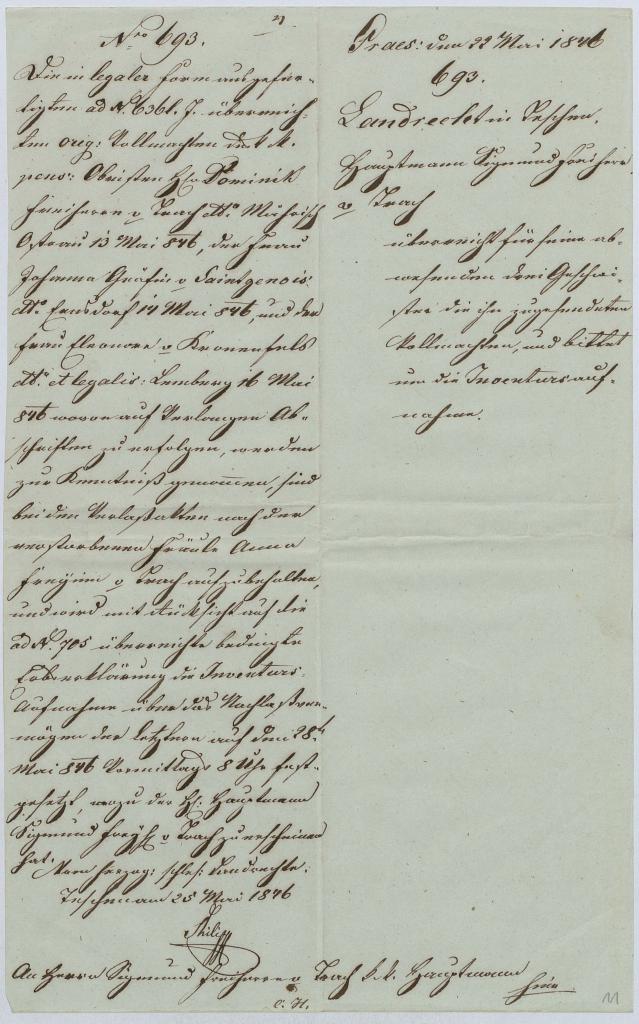 Nro 693.
Die in legaler Form ausgefer-
tigten ad N. 636 l. J. überreich-
ten orig: Vollmachten des k. k.
pens: Obristen H. Dominik
Freiherrn v Trach ddo Mährisch
Ostrau 13 Mai 846, der Frau
Johanna Gräfin v Saintgenois
ddo Ernsdorf 14 Mai 846, und der
Frau Eleonore v Kronenfels
ddo et legalis: Lemberg 16 Mai
846 wovon auf Verlangen Ab-
schriften zu erfolgen, werden
zur Kenntniß genommen, sind
bei den Verlaßakten nach der
verstorbenen Fräule Anna
Freyinn v Trach aufzubehalten,
und wird mit Rücksicht auf die
ad N. 705 überreichte bedingte
Erbserklärung die Inventurs-
Aufnahme über das Nachlaßver-
mögen der letztern auf den 28t
Mai 846 Vormittags 8 Uhr fest-
gesetzt, wozu der H: Hauptmann
Sigmund Freyh v Trach zu erscheinen
hat.
Vom herzog: schles: Landrechte.
Teschen am 25 Mai 1846
An Herrn Sigmund Freiherrn v Trach k. k. Hauptmann
hier
Praes: den 22 Mai 1846
693.
Landrecht in Teschen.
Hauptmann Sigmund Freiherr
v Trach
überreicht für seine ab-
wesenden drei Geschwi-
ster die ihm zugesendeten
Vollmachten, und bittet
um die Inventursauf-
nahme.
11